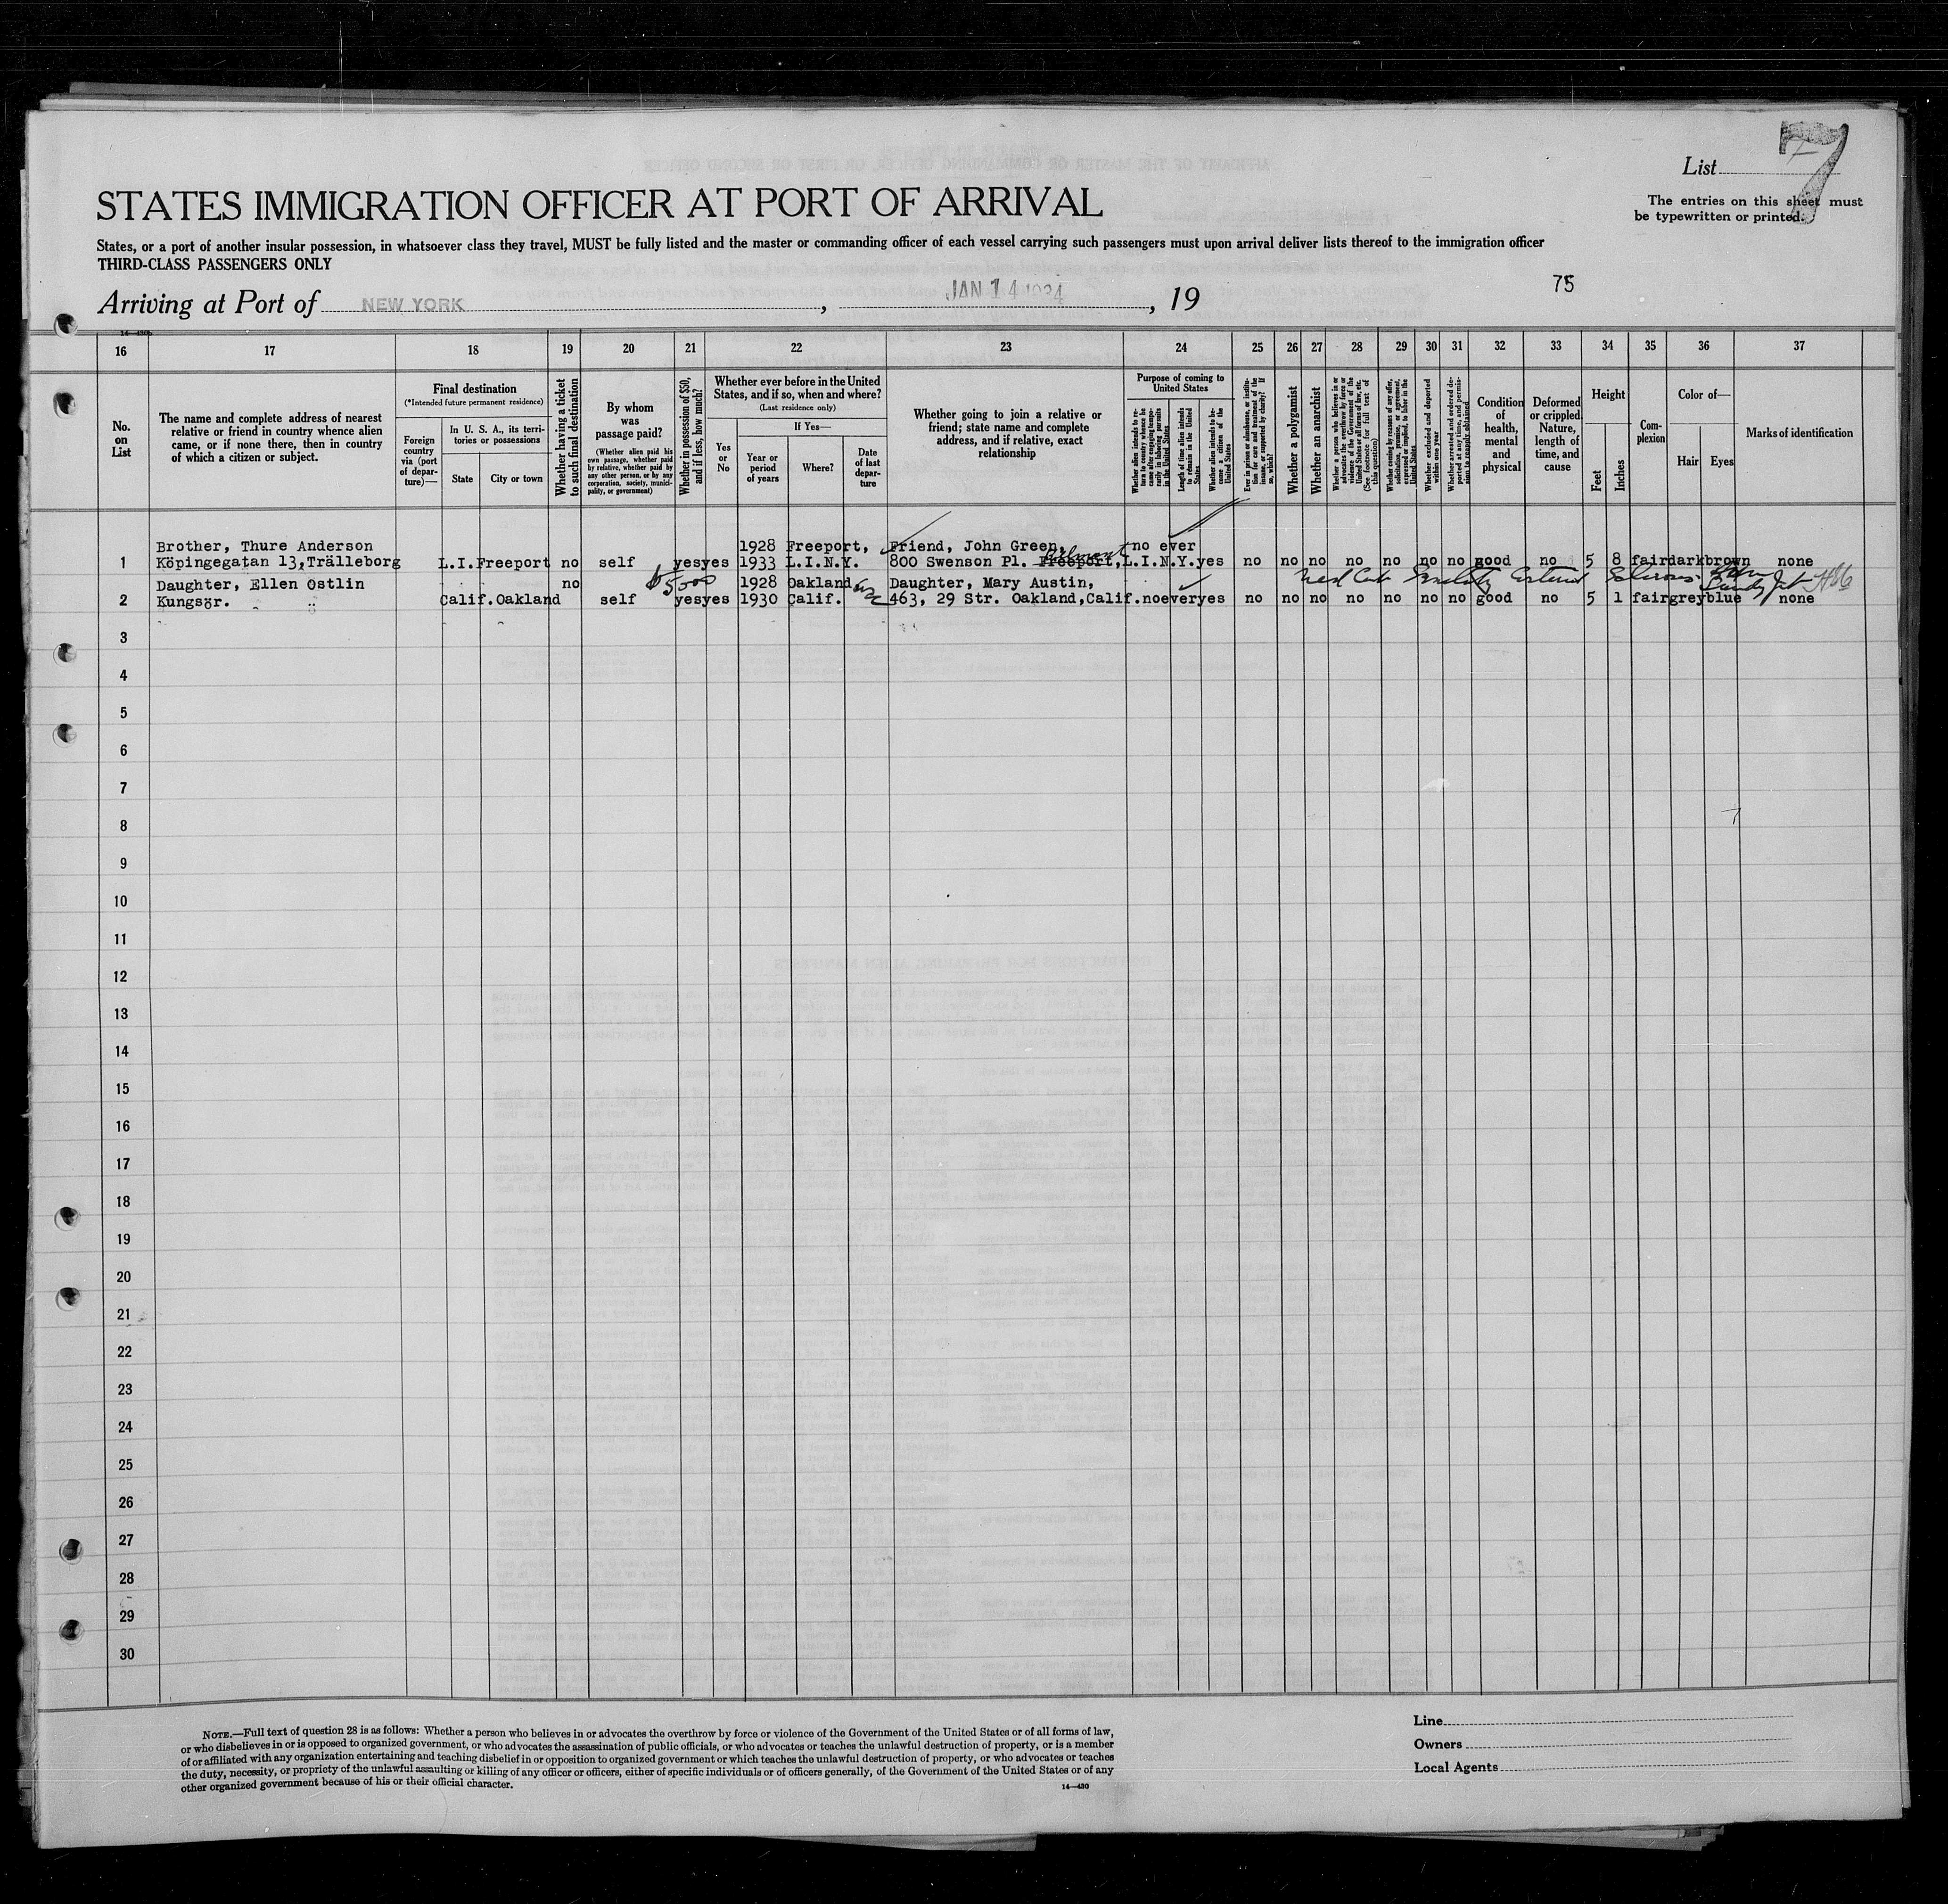 List 7
The entries on this sheet must
be typewritten or printed.
STATES IMMIGRATION OFFICER AT PORT OF ARRIVAL
States, or a port of another insular possession, in whatsoever class they travel, MUST be fully listed and the master or commanding officer of each vessel carrying such passengers must upon arrival deliver lists thereof to the immigration officer
THIRD-CLASS PASSENGERS ONLY
75
Arriving at Port of NEW YORK, JAN 14 1934, 19
14—430b
16 17 18 19 20 21 22 23 24 25 26 27 28 29 30 31 32 33 34 35 36 37
No. on List
The name and complete address of nearest relative or friend in country whence alien came, or if none there, then in country of which a citizen or subject.
Final destination
(*Intended future permanent residence)
Foreign country via (port of departure)—
In U. S. A., its territories or possessions
State
City or town
Whether having a ticket to such final destination
By whom was passage paid?
(Whether alien paid his own passage, whether paid by relative, whether paid by any other person, or by any corporation, society, municipality, or government)
Whether in possession of $50, and if less, how much?
Whether ever before in the United States, and if so, when and where?
(Last residence only)
Yes or No
If Yes—
Year or period of years
Where?
Date of last departure
Whether going to join a relative or friend; state name and complete address, and if relative, exact relationship
Purpose of coming to United States
Whether alien intends to return to country whence he came after engaging temporarily in laboring pursuits in the United States
Length of time alien intends to remain in the United States
Whether alien intends to become a citizen of the United States
Ever in prison or almshouse, or institution for care and treatment of the insane, or supported by charity? If so, which?
Whether a polygamist
Whether an anarchist
Whether a person who believes in or advocates the overthrow by force or violence of the Government of the United States or all forms of law, etc. (See footnote for full text of this question)
Whether coming by reason of any offer, solicitation, promise, or agreement, expressed or implied, to labor in the United States
Whether excluded and deported within one year
Whether arrested and ordered deported at any time, and permission to reapply obtained
Condition of health, mental and physical
Deformed or crippled. Nature, length of time, and cause
Height
Feet
Inches
Complexion
Color of—
Hair
Eyes
Marks of identification
Brother, Thure Anderson 1928 Freeport, Friend, John Green, no ever
1 Köpingegatan 13,Trälleborg L.I. Freeport no self yes yes 1933 L.I.N.Y. 800 Swenson Pl. Freeport, L.I.N.Y. yes no no no no no no no good no 5 8 fair dark brown none
Daughter, Ellen Östlin no $5000 1928 Oakland Daughter, Mary Austin, Med Cert
2 Kungsör. Calif. Oakland self yes yes 1930 Calif. 463, 29 Str. Oakland, Calif. no ever yes no no no no no no no good no 5 1 fair grey blue none
3
4
5
6
7
8
9
10
11
12
13
14
15
16
17
18
19
20
21
22
23
24
25
26
27
28
29
30
NOTE.—Full text of question 28 is as follows: Whether a person who believes in or advocates the overthrow by force or violence of the Government of the United States or of all forms of law,
or who disbelieves in or is opposed to organized government, or who advocates the assassination of public officials, or who advocates or teaches the unlawful destruction of property, or is a member
of or affiliated with any organization entertaining and teaching disbelief in or opposition to organized government or which teaches the unlawful destruction of property, or who advocates or teaches
the duty, necessity, or propriety of the unlawful assaulting or killing of any officer or officers, either of specific individuals or of officers generally, of the Government of the United States or of any
other organized government because of his or their official character.
14—430
Line
Owners
Local Agents